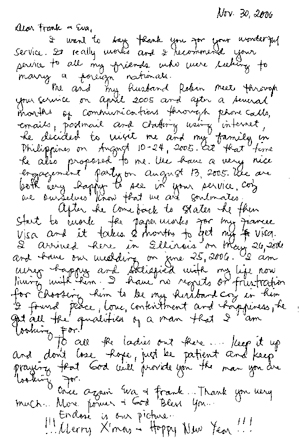 Nov. 30, 2006
Dear Frank & Eva,
I want to say thank you for your wonderful
service. It really works and I recommend your
service to all my friends who were seeking to
marry a foreign nationals.
Me and my husband Robin meet through
your service on April 2005 and after a several
months of communications through phone calls,
emails, postmail and chatting using internet,
he decided to visit me and my family in
Philippines on August 10-24, 2005. At that time
he also proposed to me. We have a very nice
engagement party on August 13, 2005. We are
both very happy to see in your service, coz
we ourselves know that we are soulmates.
After he came back to States he then
start to work the paper works for my fiancee
visa and it takes months to get my visa.
I arrived here in Illinois on May 26, 2006
and have our wedding on June 25, 2006. I am
very happy and satisfied with my life now
living with him. I have no regrets or frustration
for choosing him to be my husband coz in him
I found peace, love, contentment and happiness, he
got all the qualities of a man that I am
looking for!
To all the ladies out there.... Keep it up
and don't lose hope, just be patient and keep
praying that God will provide you the man you are
looking for.
Once again Eva & Frank... Thank you very
much... More power & God Bless You...
Enclose is our picture..
!!! Merry X'mas & Happy New Year !!!